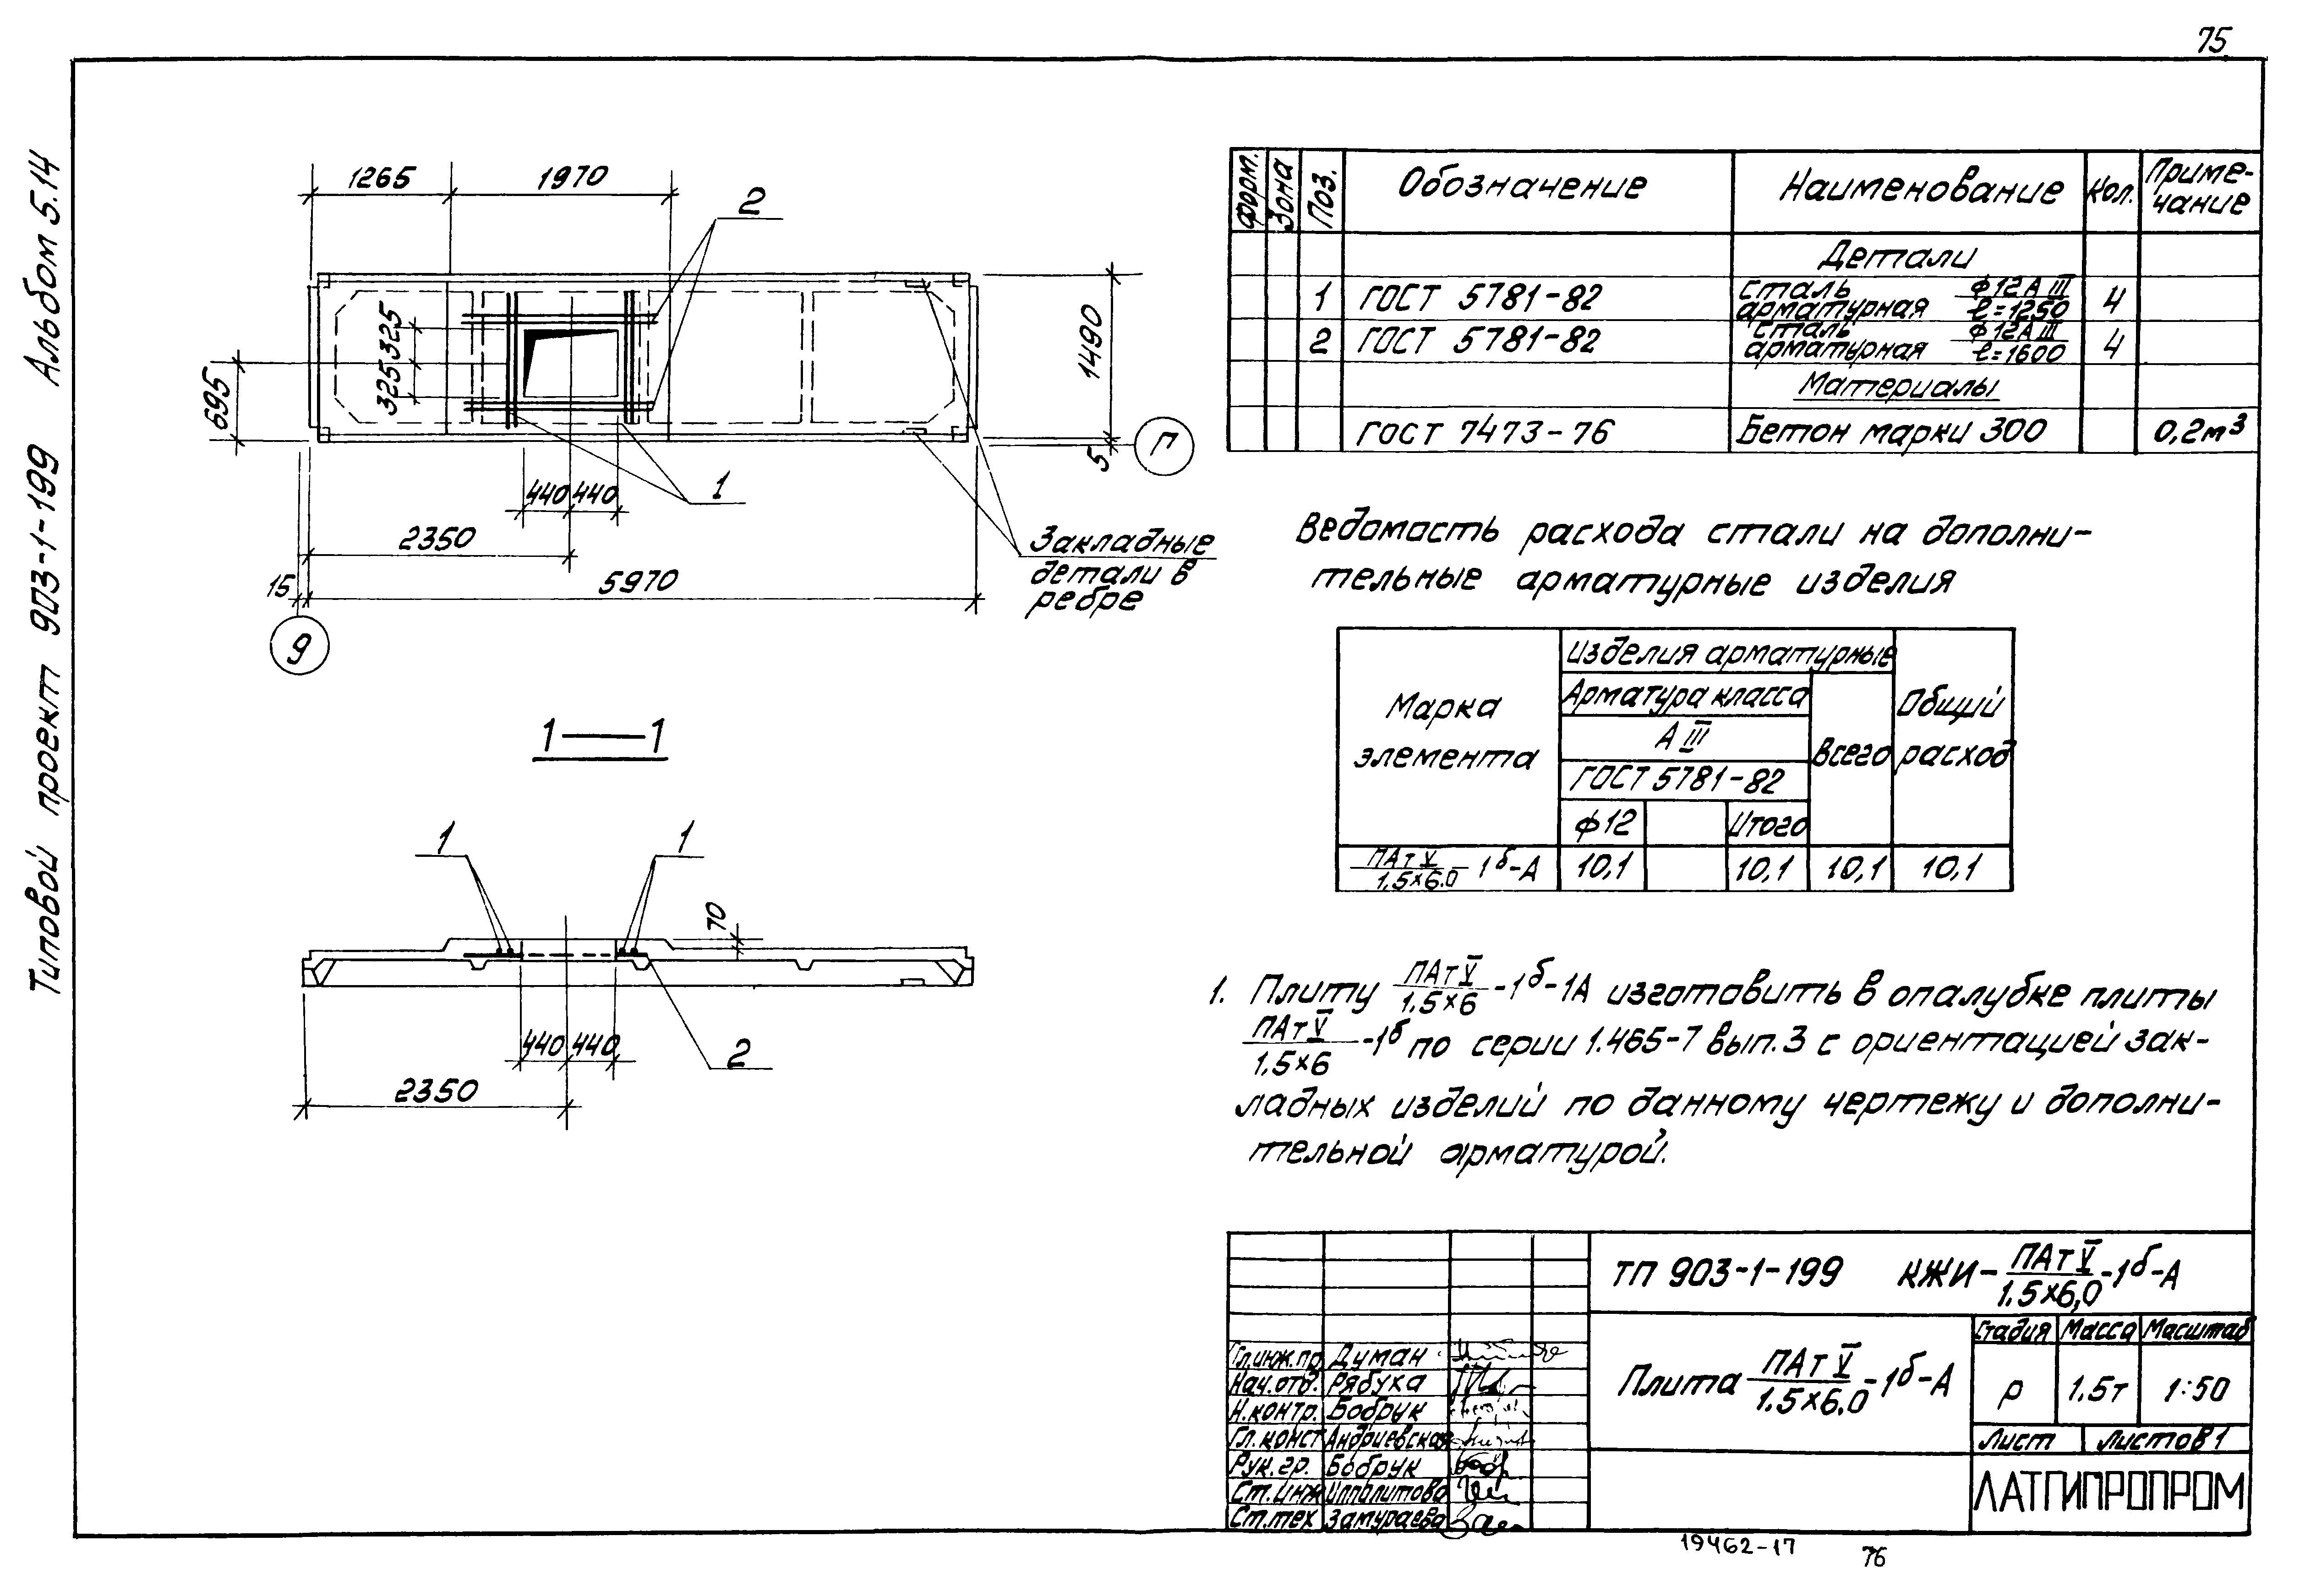 75
Типовой проект 903-1-199 Альбом 5.14
1265
1970
2
325 325
695
1490
5
Г
440 440
1
2350
15
5970
9
Закладные
детали в
ребре
1—1
1
1
70
440 440
2
2350
Форм.
Зона
Поз.
Обозначение
Наименование
Кол.
Приме-
чание
Детали
1 ГОСТ 5781-82 сталь арматурная ф12АIII ℓ=1250 4
2 ГОСТ 5781-82 сталь арматурная ф12АIII ℓ=1600 4
Материалы
ГОСТ 7473-76 Бетон марки 300 0,2м³
Ведомость расхода стали на дополни-
тельные арматурные изделия
Марка
элемента
Изделия арматурные
Арматура класса
АIII
ГОСТ 5781-82
ф12
Итого
Всего
Общий
расход
ПАтV/1,5×6.0 -1б-А 10,1 10,1 10,1 10,1
1. Плиту ПАтV/1,5×6 -1б-1А изготовить в опалубке плиты
ПАтV/1,5×6 -1б по серии 1.465-7 вып.3 с ориентацией зак-
ладных изделий по данному чертежу и дополни-
тельной арматурой.
ТП 903-1-199 КЖИ- ПАтV/1.5×6,0 -1б-А
Плита ПАтV/1.5×6.0 -1б-А
Стадия Масса Масштаб
р 1.5т 1:50
Лист Листов 1
ЛАТГИПРОПРОМ
Гл.инж.пр. Думан
Нач.отд. Рябуха
Н.контр. Бобрук
Гл.конст Андриевская
Рук.гр. Бобрук
Ст.инж Ипполитова
Ст.тех Замураева
19462-17 76